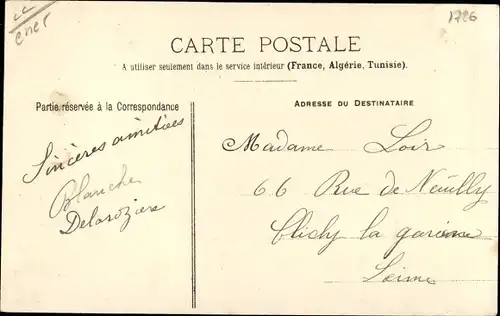 cher
1726
CARTE POSTALE
A utiliser seulement dans le service intérieur (France, Algérie, Tunisie).
Partie réservée à la Correspondance
ADRESSE DU DESTINATAIRE
Sincères amitiées
Blanche
Delarozière
Madame Loir
66 Rue de Neuilly
Clichy la garenne
Seine